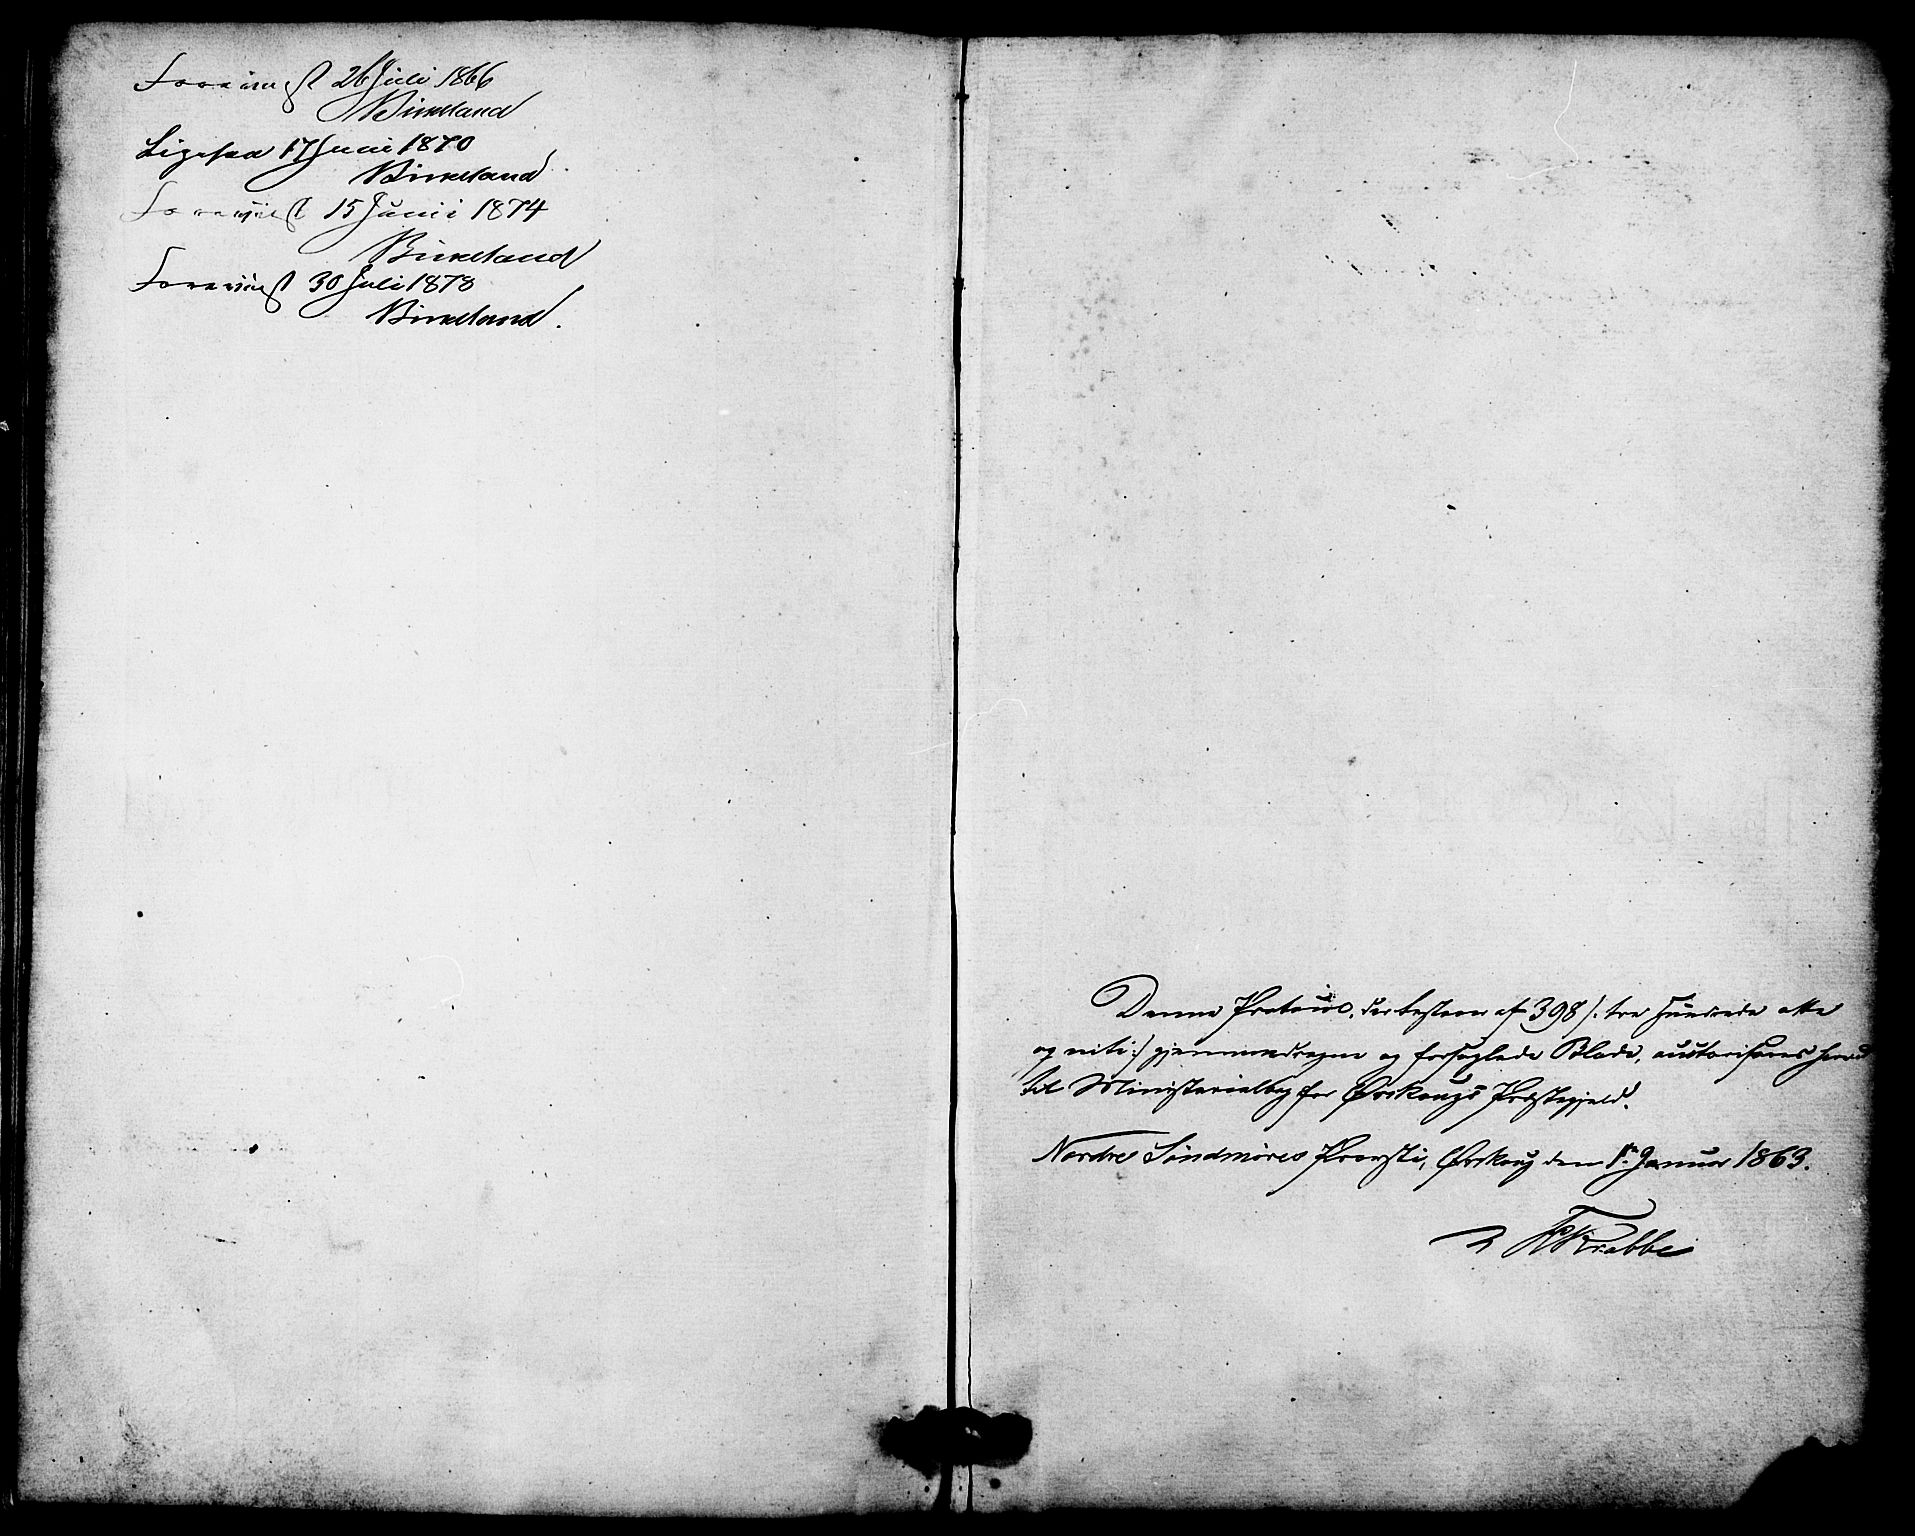 Foreviist 26 Juli 1866
Birkeland
Ligesaa 17 Juni 1870
Birkeland
Foreviist 15 Juni 1874
Birkeland
Foreviist 30 Juli 1878
Birkeland.
Denne Protocol, der bestaar af 398 /: tre hundrede otte
og niti :/ gjennemdragne og forseglede Blade, autoriseres herved
til Ministerialbog for Ørskougs Præstegjeld.
Nordre Söndmöres Provsti, Ørskoug den 1ste Januar 1863.
Krabbe